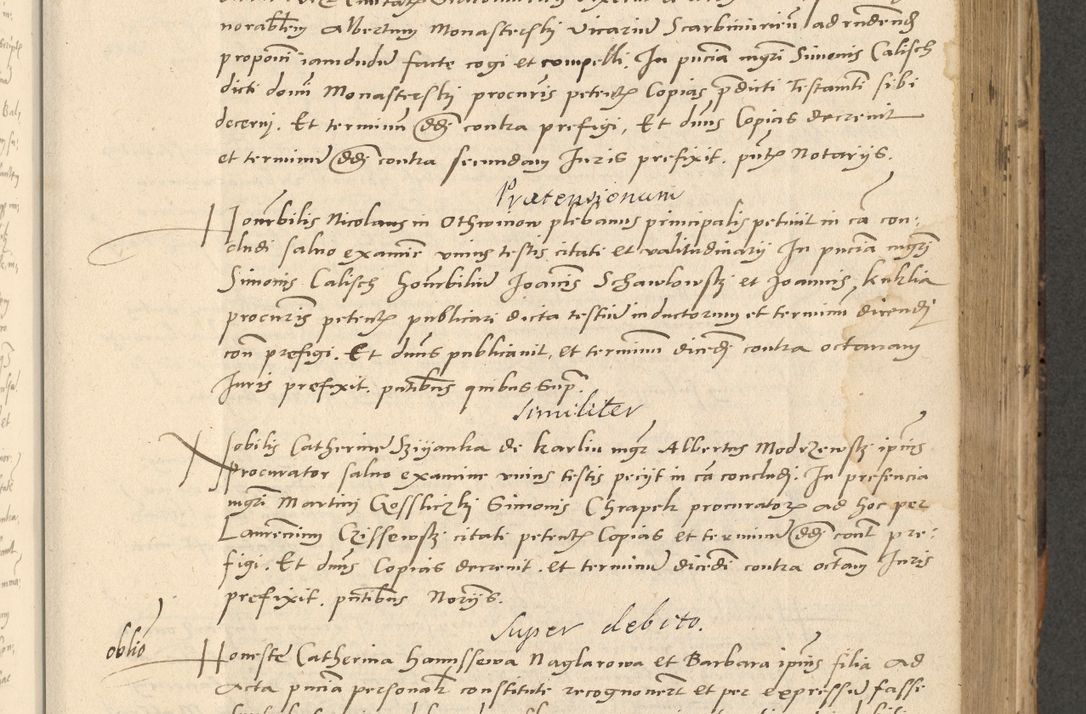 norabilem Albertum Monasterski vicarium Scarbimirien ad rndend
proponi iamdudu facte cogi et compelli. In pncia mgri Simonis Calisch
dicti domi Monasterski procuris petent Copias pdicti Testamti sibi
decerni. Et terminu ddi contra prefigi, Et dnus Copias decrevit
et terminu ddi contra secundam Juris prefixit. pnt Notariis.
Prætensionum
Honorbilis Nicolaus in Othwinow plebanus principalis petiuit in ca con-
cludi saluo examine unius testis citati et valitudinarii In pncia mgri
Simonis Calisch honorbiliu Joannis Schawlowski et Joannis Kuklia
procuris petent publicari dicta testiu inductorum et terminu dicendi
con prefigi. Et dnus publicauit, et terminum dicedi contra octauam
Juris prefixit. pntibus quibus supr.
Similiter
Nobilis Catherine de Karliu mgr Albertus Modrzewski ipius
Procurator saluo examine unius testis peciit in ca concludi. In presencia
mgri Martini Gossliczki Simonis Chrapek procurator ad hoc per
Laurenium Czissewski citati petent Copias et terminu ddi cont pre-
figi. Et dnus Copias decreuit. et terminu dicedi contra octauam Juris
prefixit. pntibus Noriis.
Super debito.
oblio
Honeste Catherina hanussewa Naglarowa et Barbara ipius filia ad
Acta pncia personalr constitute recognouert et per expressu fasse